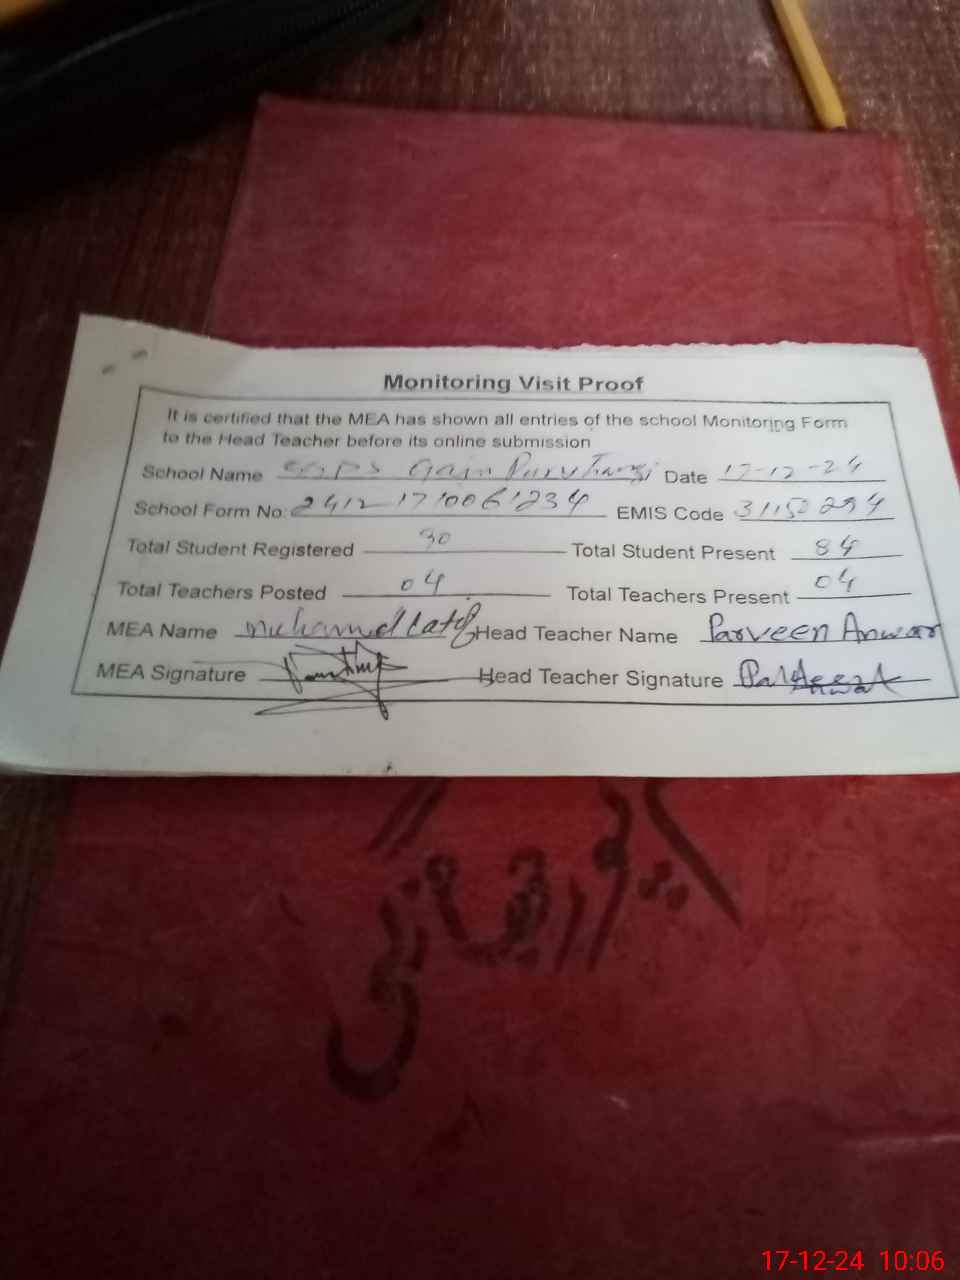 Monitoring Visit Proof
It is certified that the MEA has shown all entries of the school Monitoring Form
to the Head Teacher before its online submission
School Name Date 17-12-24
School Form No: 2412-1710061234 EMIS Code 31150294
Total Student Registered 90 Total Student Present 84
Total Teachers Posted 04 Total Teachers Present 04
MEA Name Head Teacher Name Parveen Anwar
MEA Signature Head Teacher Signature
17-12-24 10:06